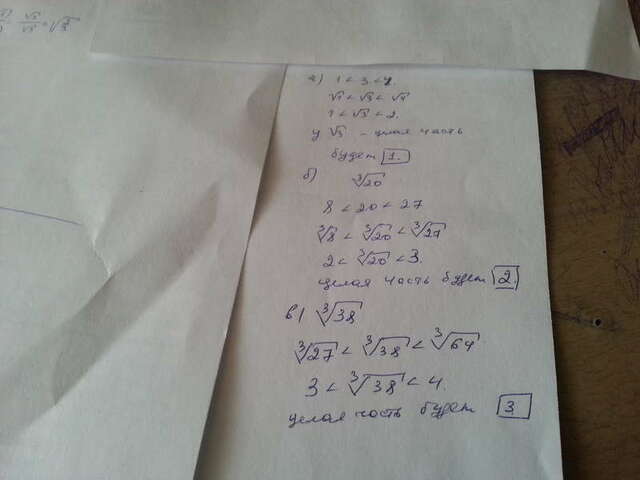 а) 1 < 3 < 4.
√1 < √3 < √4
1 < √3 < 2.
у √3 - целая часть
будет 1.
б) ∛20
8 < 20 < 27
∛8 < ∛20 < ∛27
2 < ∛20 < 3.
целая часть будет 2.
в) ∛38
∛27 < ∛38 < ∛64
3 < ∛38 < 4.
целая часть будет 3